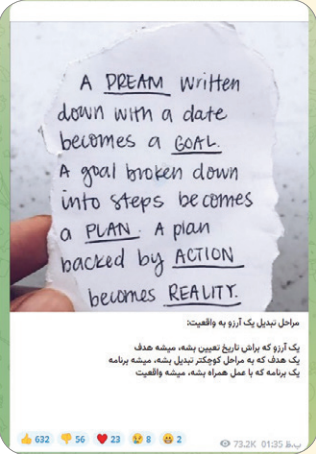 A DREAM written
down with a date
becomes a GOAL.
A goal broken down
into steps becomes
a PLAN. A plan
backed by ACTION
becomes REALITY.
مراحل تبدیل یک آرزو به واقعیت:
یک آرزو که براش تاریخ تعیین بشه، میشه هدف
یک هدف که به مراحل کوچکتر تبدیل بشه، میشه برنامه
یک برنامه که با عمل همراه بشه، میشه واقعیت
632 56 23 8 2
73.2K 01:35 ب.ظ